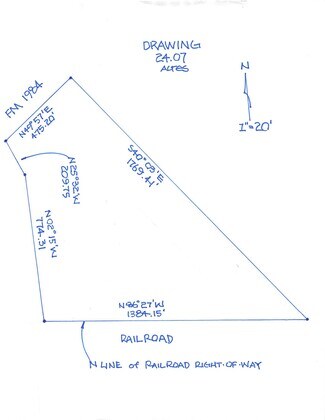 DRAWING
24.07
ACRES
N
1"=20'
FM 1984
N49°57'E
475.20'
S40°03'E
1769.41'
N25°32'W
209.75
N02°15'W
774.31
N86°27'W
1384.15'
RAILROAD
N LINE of RAILROAD RIGHT-OF-WAY